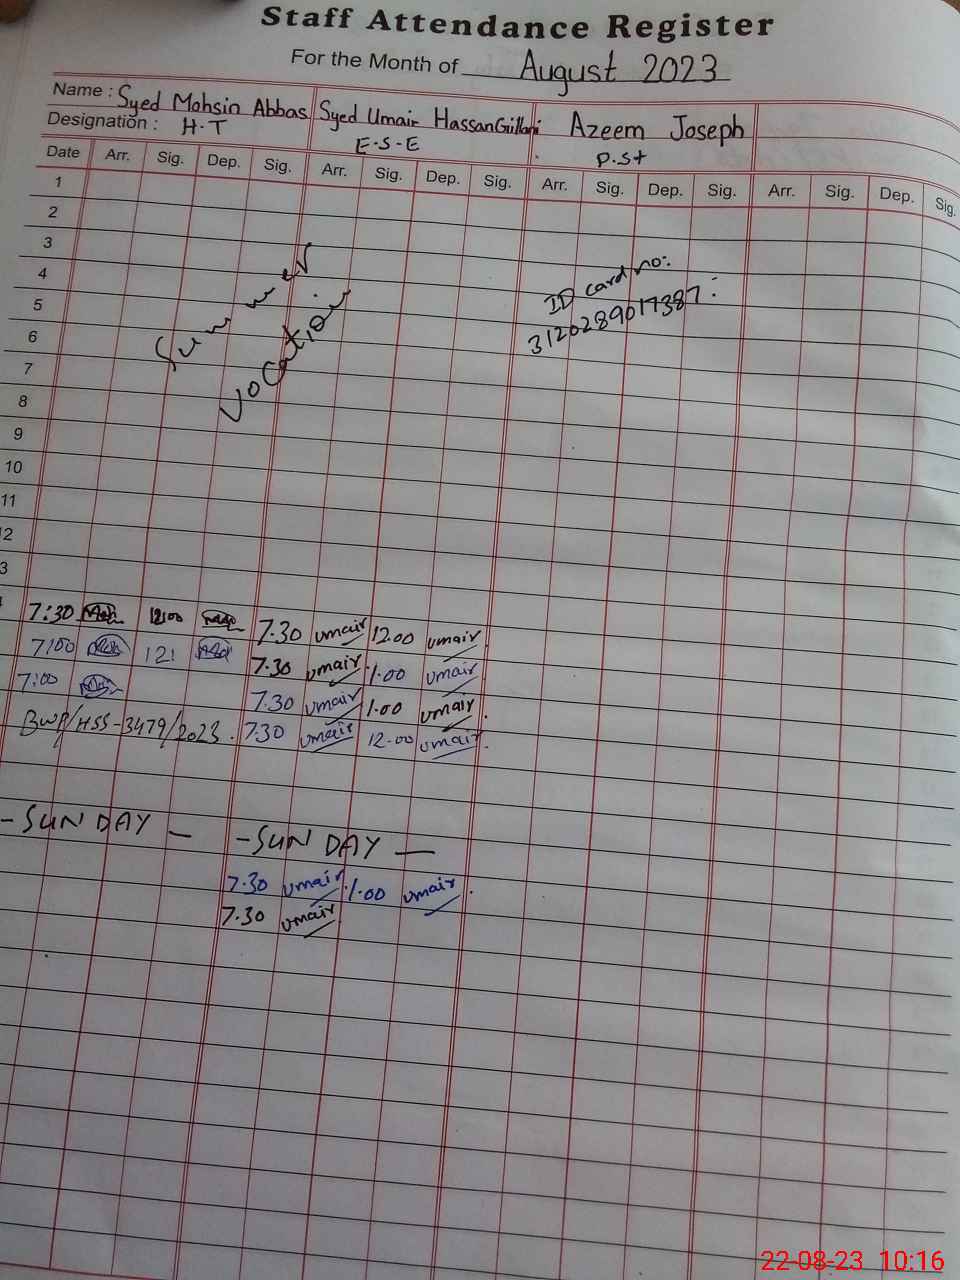 Staff Attendance Register
For the Month of August 2023
Name : Syed Mohsin Abbas Syed Umair Hassan Gillani Azeem Joseph
Designation : H.T E-S-E P.St
Date Arr. Sig. Dep. Sig. Arr. Sig. Dep. Sig. Arr. Sig. Dep. Sig. Arr. Sig. Dep. Sig.
1
2
3
4
5
6
7
8
9
10
11
2
3
Summer
Vocation
ID card no:
3120289017387:
7:30 12:00 7.30 umair 12.00 umair
7:00 12: 7.30 umair 1.00 umair
7:00 7.30 umair 1.00 umair
BWP/HSS-3479/2023. 7.30 umair 12.00 umair
-SUNDAY- -SUNDAY-
7.30 umair 1.00 umair
7.30 umair
22-08-23 10:16